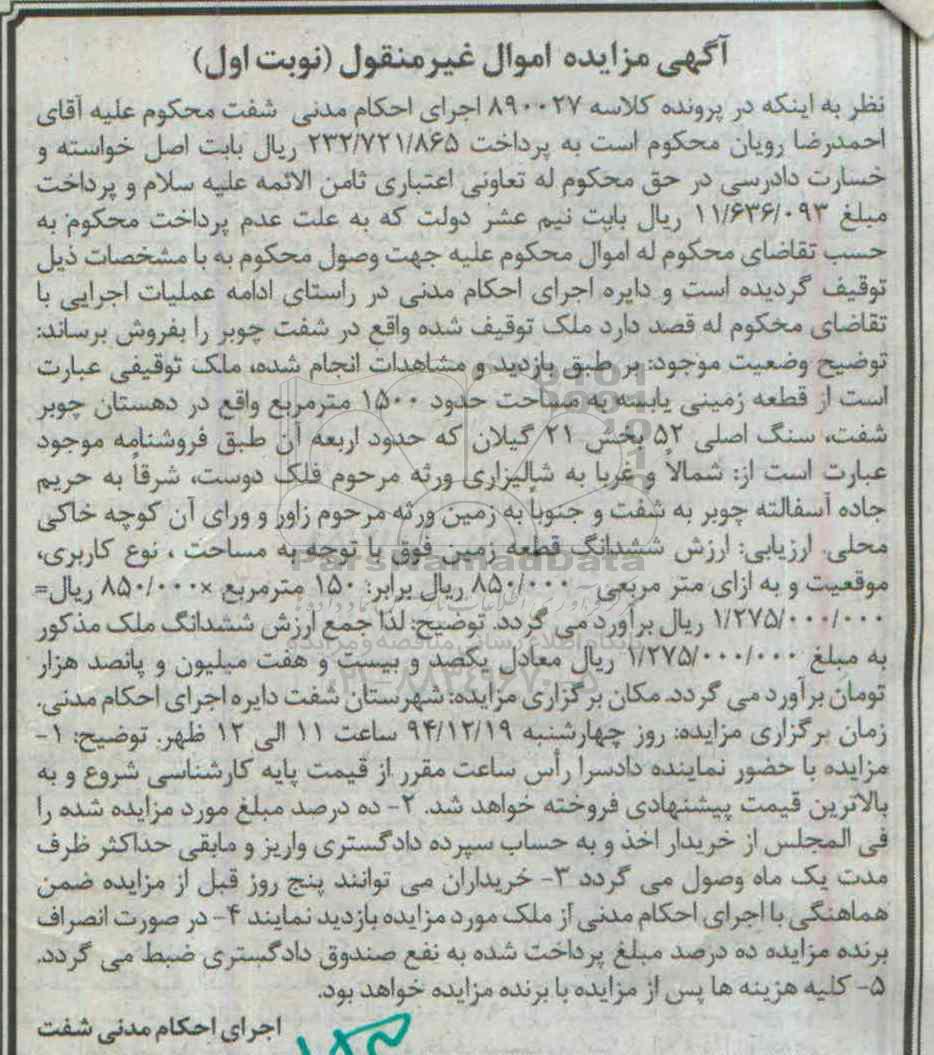 آگهی مزایده اموال غیرمنقول (نوبت اول)
نظر به اینکه در پرونده کلاسه ۸۹۰۰۲۷ اجرای احکام مدنی شفت محکوم علیه آقای
احمدرضا رویان محکوم است به پرداخت ۲۳۲/۷۲۱/۸۶۵ ریال بابت اصل خواسته و
خسارت دادرسی در حق محکوم له تعاونی اعتباری ثامن الائمه علیه سلام و پرداخت
مبلغ ۱۱/۶۳۶/۰۹۳ ریال بابت نیم عشر دولت که به علت عدم پرداخت محکوم به
حسب تقاضای محکوم له اموال محکوم علیه جهت وصول محکوم به با مشخصات ذیل
توقیف گردیده است و دایره اجرای احکام مدنی در راستای ادامه عملیات اجرایی با
تقاضای محکوم له قصد دارد ملک توقیف شده واقع در شفت چوبر را بفروش برساند:
توضیح وضعیت موجود: بر طبق بازدید و مشاهدات انجام شده، ملک توقیفی عبارت
است از قطعه زمینی یابسه به مساحت حدود ۱۵۰۰ مترمربع واقع در دهستان چوبر
شفت، سنگ اصلی ۵۲ بخش ۲۱ گیلان که حدود اربعه آن طبق فروشنامه موجود
عبارت است از: شمالاً و غربا به شالیزاری ورثه مرحوم فلک دوست، شرقاً به حریم
جاده آسفالته چوبر به شفت و جنوباً به زمین ورثه مرحوم زاور و ورای آن کوچه خاکی
محلی. ارزیابی: ارزش ششدانگ قطعه زمین فوق با توجه به مساحت ، نوع کاربری،
موقعیت و به ازای متر مربعی ۸۵۰/۰۰۰ ریال برابر: ۱۵۰ مترمربع ×۸۵۰/۰۰۰ ریال=
۱/۲۷۵/۰۰۰/۰۰۰ ریال برآورد می گردد. توضیح: لذا جمع ارزش ششدانگ ملک مذکور
به مبلغ ۱/۲۷۵/۰۰۰/۰۰۰ ریال معادل یکصد و بیست و هفت میلیون و پانصد هزار
تومان برآورد می گردد. مکان برگزاری مزایده: شهرستان شفت دایره اجرای احکام مدنی.
زمان برگزاری مزایده: روز چهارشنبه ۹۴/۱۲/۱۹ ساعت ۱۱ الی ۱۲ ظهر. توضیح: ۱-
مزایده با حضور نماینده دادسرا رأس ساعت مقرر از قیمت پایه کارشناسی شروع و به
بالاترین قیمت پیشنهادی فروخته خواهد شد. ۲- ده درصد مبلغ مورد مزایده شده را
فی المجلس از خریدار اخذ و به حساب سپرده دادگستری واریز و مابقی حداکثر ظرف
مدت یک ماه وصول می گردد ۳- خریداران می توانند پنج روز قبل از مزایده ضمن
هماهنگی با اجرای احکام مدنی از ملک مورد مزایده بازدید نمایند ۴- در صورت انصراف
برنده مزایده ده درصد مبلغ پرداخت شده به نفع صندوق دادگستری ضبط می گردد.
۵- کلیه هزینه ها پس از مزایده با برنده مزایده خواهد بود.
اجرای احکام مدنی شفت
ParsNamadData